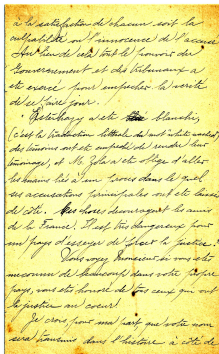 à la satisfaction de chacun soit la
culpabilité ou l'innocence de l'accusé
Au lieu de cela tout le pouvoir du
Gouvernement et des tribunaux a
été exercé pour empêcher la vérité
de se faire jour.
Esterhazy a été blanchi,
(c'est la traduction littérale du mot white washed)
des témoins ont été empêchés de rendre leur
témoignage, et M. Zola a été obligé d'aller
les mains liées à un procès dans lequel
ses accusations principales ont été laissées
de côté. choses découragent les amis
de la France. Il est très dangereux pour
un pays d'essayer de la justice!
Vous voyez Monsieur si vous êtes
méconnu de beaucoup dans votre propre
pays, vous êtes honoré de tous ceux qui ont
la justice au coeur!
Je crois pour ma part que votre nom
sera transmis dans l'histoire à côté de